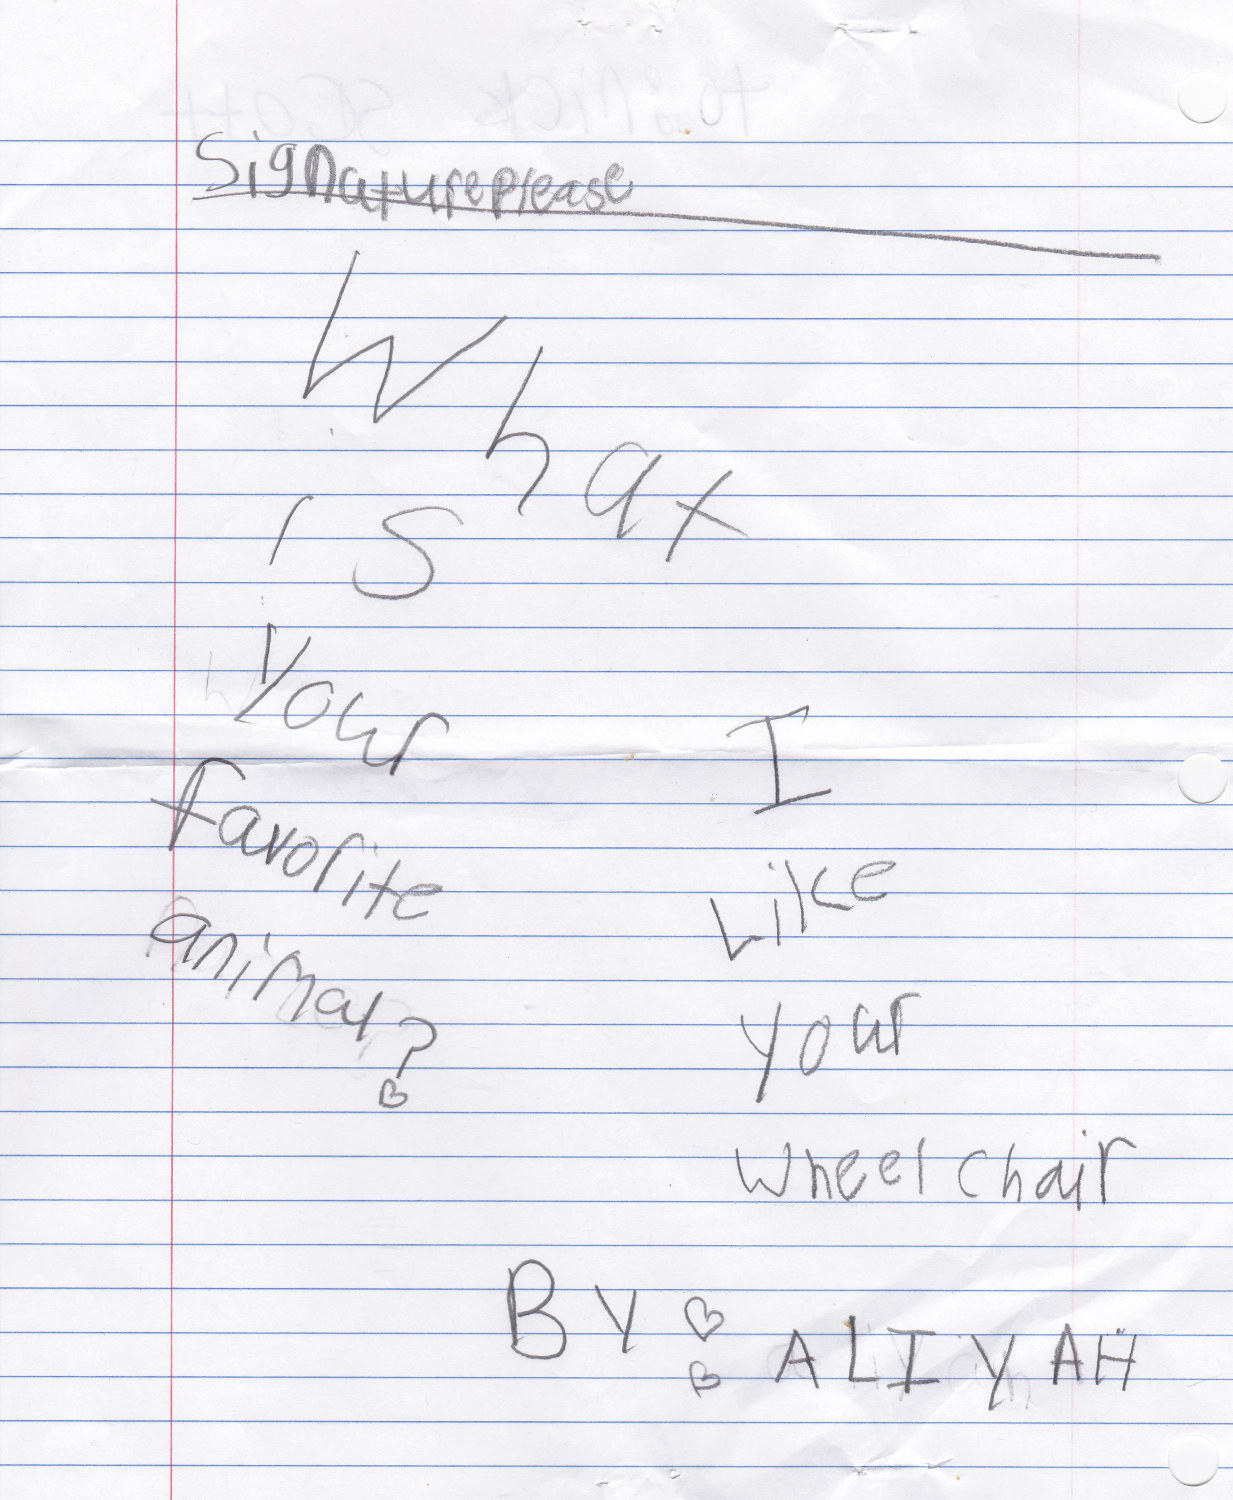 Signature please
What
is
your
favorite
animal?
I
Like
your
wheel chair
By: ALIYAH